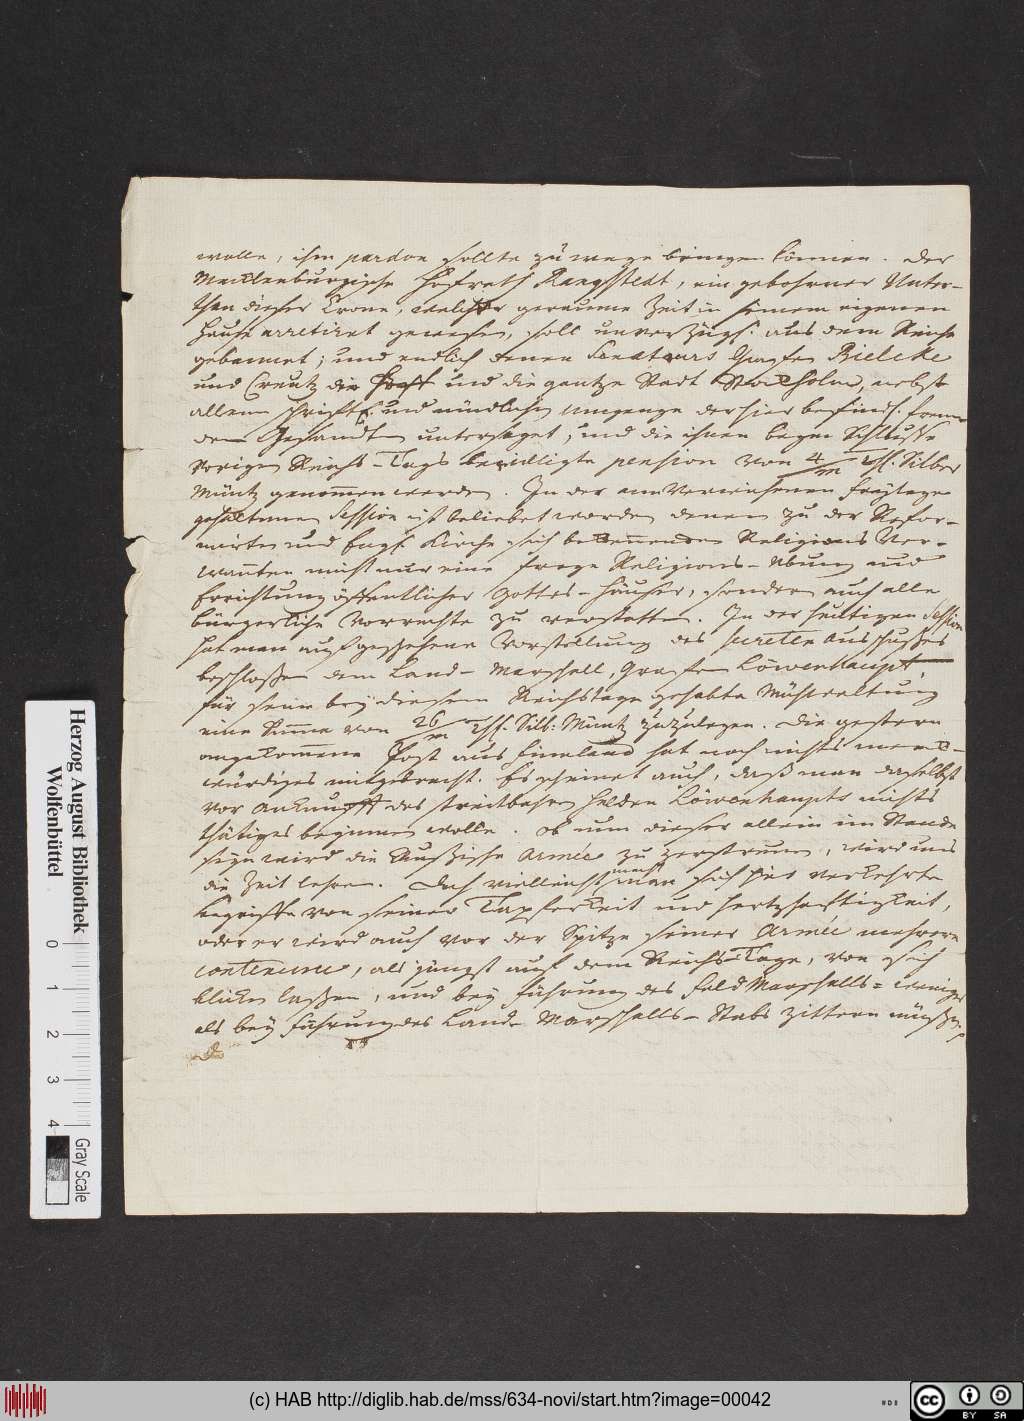 wolle, ihm pardon sollte zu wege bringen können. Der
Mecklenburgische Hofrath Rangstedt, ein gebohrner Unter-
than dieser Crone, welcher geraume Zeit in seinem eigenen
Hause arretiret gewesen, soll unverzügl. aus dem Reiche
gebannet; und endlich denen Senateurs Grafen Bielcke
und Creutz der Hoff und die gantze Stadt Stockholm, nebst
allem schriftl. und mündlichen Umgange der hier befindl. frem-
den Gesandten untersaget, und die ihnen beym Schlusse
vorigen Reichs-Tags bewilligte pension von 4/m Thl. Silber
Müntz genommen werden. In der am verwichenen Freytage
gehaltenen Session ist beliebet worden denen zu der Refor-
mirten und Engl. Kirche sich bekennenden Religions Ver-
wannten nicht nur eine freye Religions-Übung und
Errichtung öffentlicher Gottes-Häuser, sondern auch alle
bürgerliche Vorrechte zu verstatten. In der heutigen Session
hat man auf geschehene Vorstellung des secreten Ausschußes
beschloßen dem Land-Marschall, Grafen Löwenhaupt,
für seine bey diesem Reichstage gehabte Mühwaltung
eine Summe von 26/m Thl. Silb: Müntz zuzulegen. Die gestern
angekommene Post aus Finnland hat noch nichts merck-
würdiges mitgebracht. Es scheinet auch, daß man daselbst
vor Ankunfft des streitbahren Helden Löwenhaupts nichts
thätiges beginnen wolle. Ob nun dieser allein im Stande
seyn wird die Rußische Armée zu zerstreuen, wird uns
die Zeit lehren. Doch vielleicht macht man sich hier verkehrte
Begriffe von seiner Tapferkeit und Hertzhaftigkeit,
oder er wird auch vor der Spitze seiner Armée mehrere
contenence, als jüngst auf dem Reichs-Tage, von sich
blicken laßen, und bey Führung des Feld Marschalls- weniger
als bey Führung des Land-Marschalls-Stabs zittern müßen.
Herzog August Bibliothek
Wolfenbüttel
0 1 2 3 4
Gray Scale
(c) HAB http://diglib.hab.de/mss/634-novi/start.htm?image=00042
cc BY SA